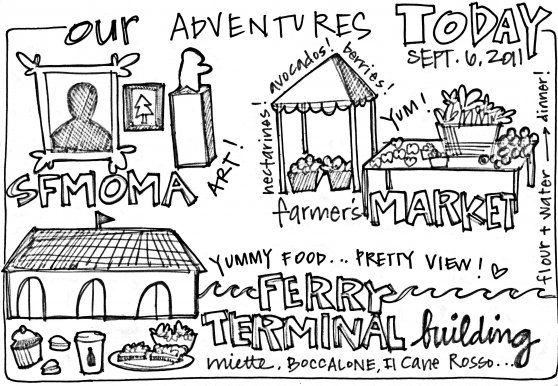 our ADVENTURES TODAY
SEPT. 6, 2011
SFMOMA
ART!
nectarines! avocados! berries!
YUM!
farmer's MARKET
flour + water → dinner!
YUMMY FOOD... PRETTY VIEW! ♡
FERRY
TERMINAL building
miette, BOCCALONE, Il Cane Rosso...